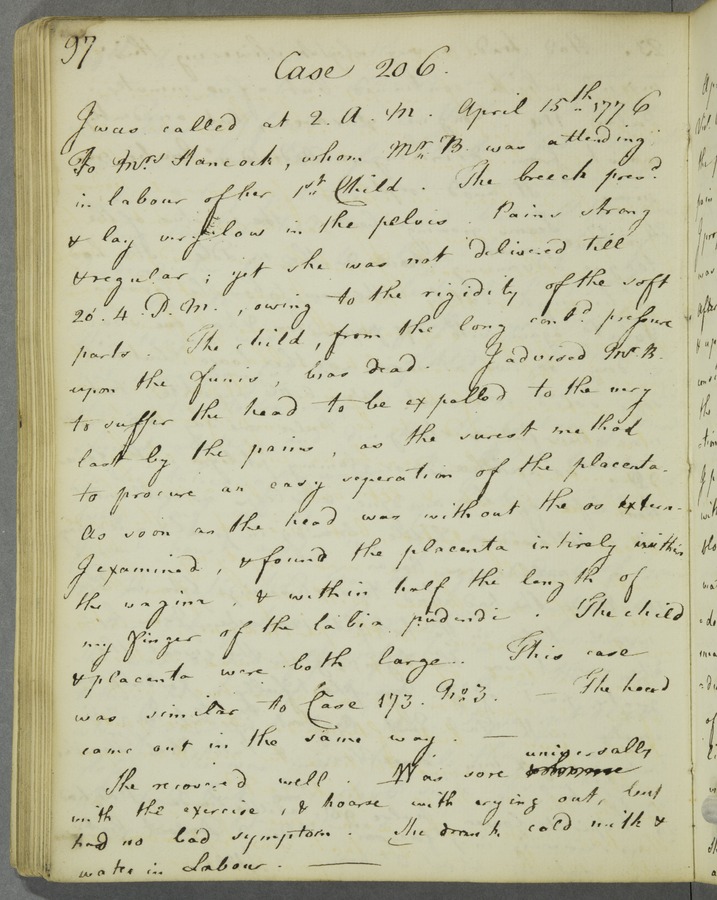 97
Case 206.
I was called at 2. A. M. April 15th 1776
To Mrs Hancock, whom Mr B. was attending
in labour of her 1st Child. The breech presd
& lay very low in the pelvis. Pains strong
& regular; yet she was not delivered till
20'. 4. P. M., owing to the rigidity of the soft
parts. The child, from the long contd pressure
upon the funis, was dead. I advised Mr B.
to suffer the head to be expelled to the very
last by the pains, as the surest method
to procure an easy seperation of the placenta.
As soon as the head was without the os extern.
I examined, & found the placenta intirely within
the vagina, & within half the length of
my finger of the labia pudendi. The child
& placenta were both large. This case
was similar to Case 173. No 3. — The head
came out in the same way. —
She recovered well. Was sore universally
with the exercise, & hoarse with crying out, but
had no bad symptom. She drank cold milk &
water in Labour. —